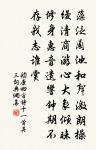 藻泛蘭池和聲激朗操
縵清商游心大象傾昧
修身惠音遺響鍾期不
存我志誰賞
嵇康四言詩十一首其
三詞典網集